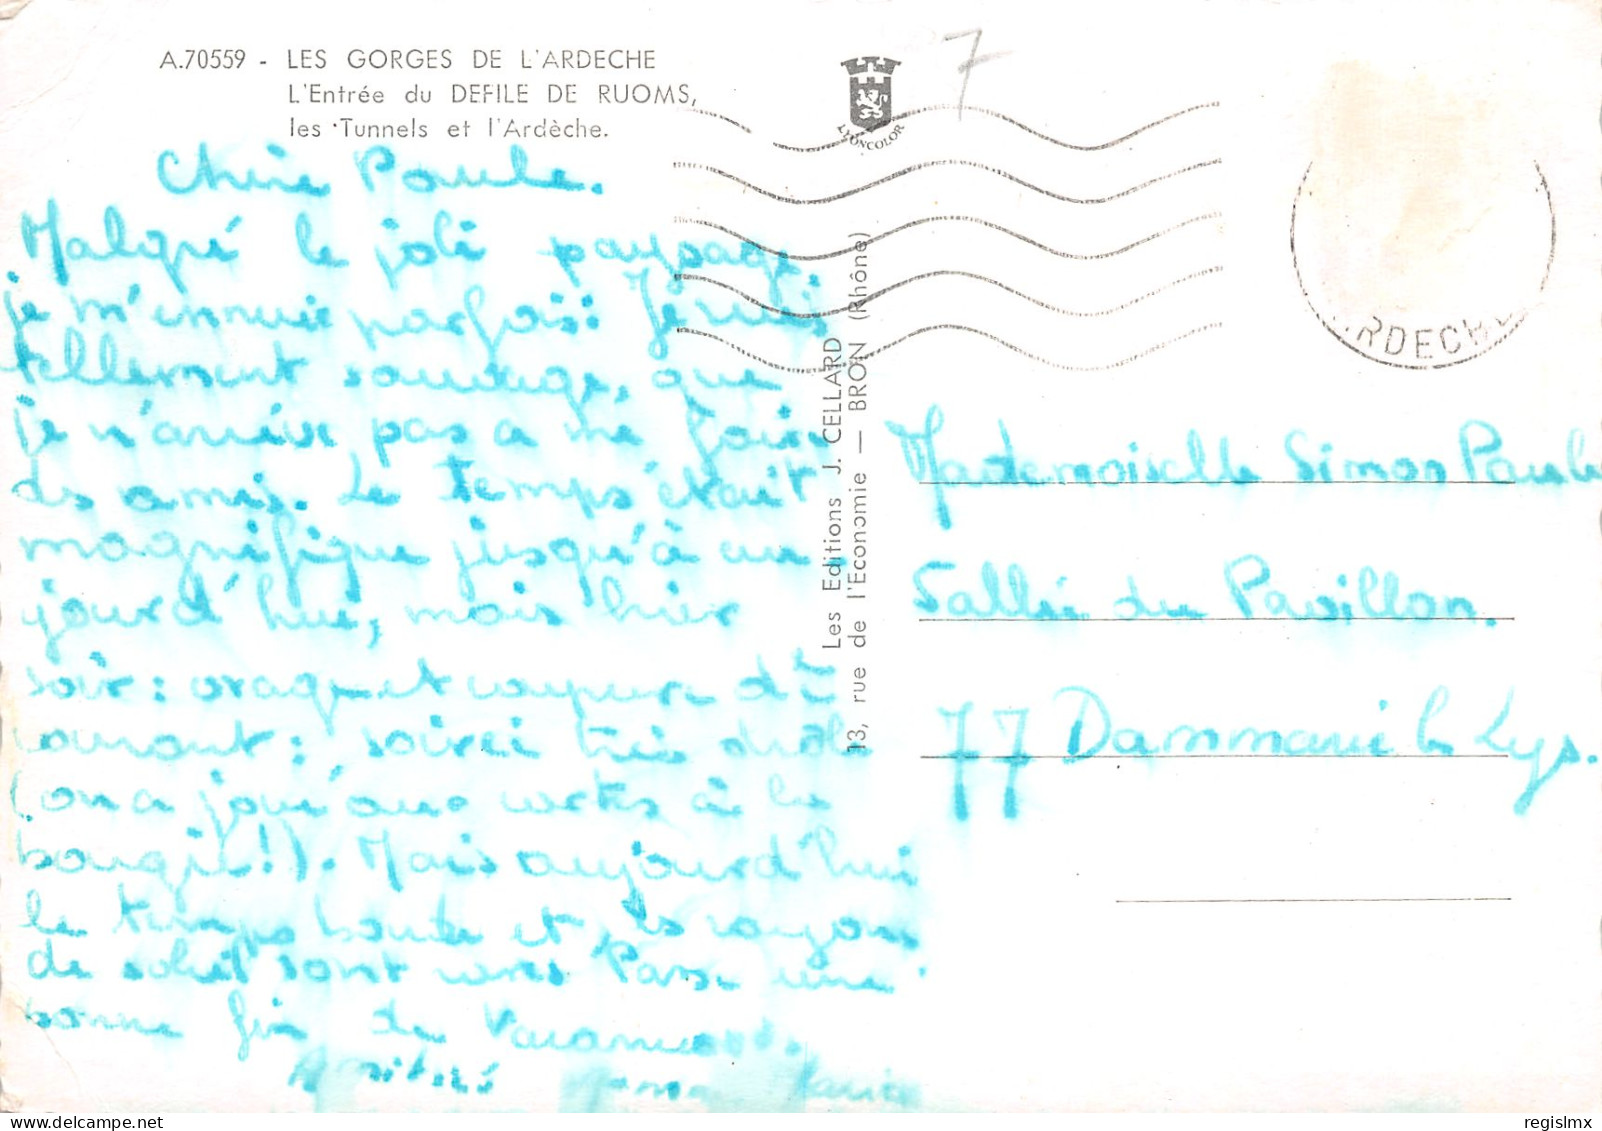 A.70559 - LES GORGES DE L'ARDECHE
L'Entrée du DEFILE DE RUOMS,
les Tunnels et l'Ardèche.
7
LYONCOLOR
ARDECHE
Chère Paule.
Malgré le joli paysage,
je m'ennuie parfois: Je suis
tellement sauvage, que
je n'arrive pas a me faire
des amis. Le temps était
magnifique jusqu'à au-
jourd'hui, mais hier
soir: orage et coupure de
courant: soirée très drôle
(on a joué aux cartes à la
bougie!). Mais aujourd'hui
le temps boude et les rayons
de soleil sont rares Passe une
bonne fin de Vacances
Amitiés Marie
Les Editions J. CELLARD
13, rue de l'Economie — BRON (Rhône)
Mademoiselle Simon Paule
Sallée du Pavillon.
77 Dammarie les Lys.
regislmx